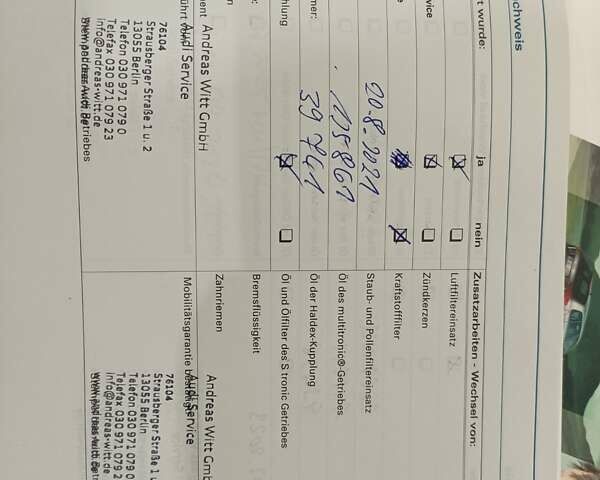 chweis
t wurde:
ja
nein
Zusatzarbeiten - Wechsel von:
Luftfiltereinsatz
vice
Zündkerzen
Kraftstofffilter
20.8.2021
Staub- und Pollenfiltereinsatz
135861
Öl des multitronic®-Getriebes
mer:
39741
Öl der Haldex-Kupplung
hlung
Öl und Ölfilter des S tronic Getriebes
Bremsflüssigkeit
Zahnriemen
ment
Andreas Witt GmbH
Andreas Witt Gmb
ührt
Audi Service
Mobilitätsgarantie
Audi Service
76104
Strausberger Straße 1 u. 2
13055 Berlin
Telefon 030 971 079 0
Telefax 030 971 079 23
info@andreas-witt.de
76104
Strausberger Straße 1
13055 Berlin
Telefon 030 971 079 0
Telefax 030 971 079 2
info@andreas-witt.d